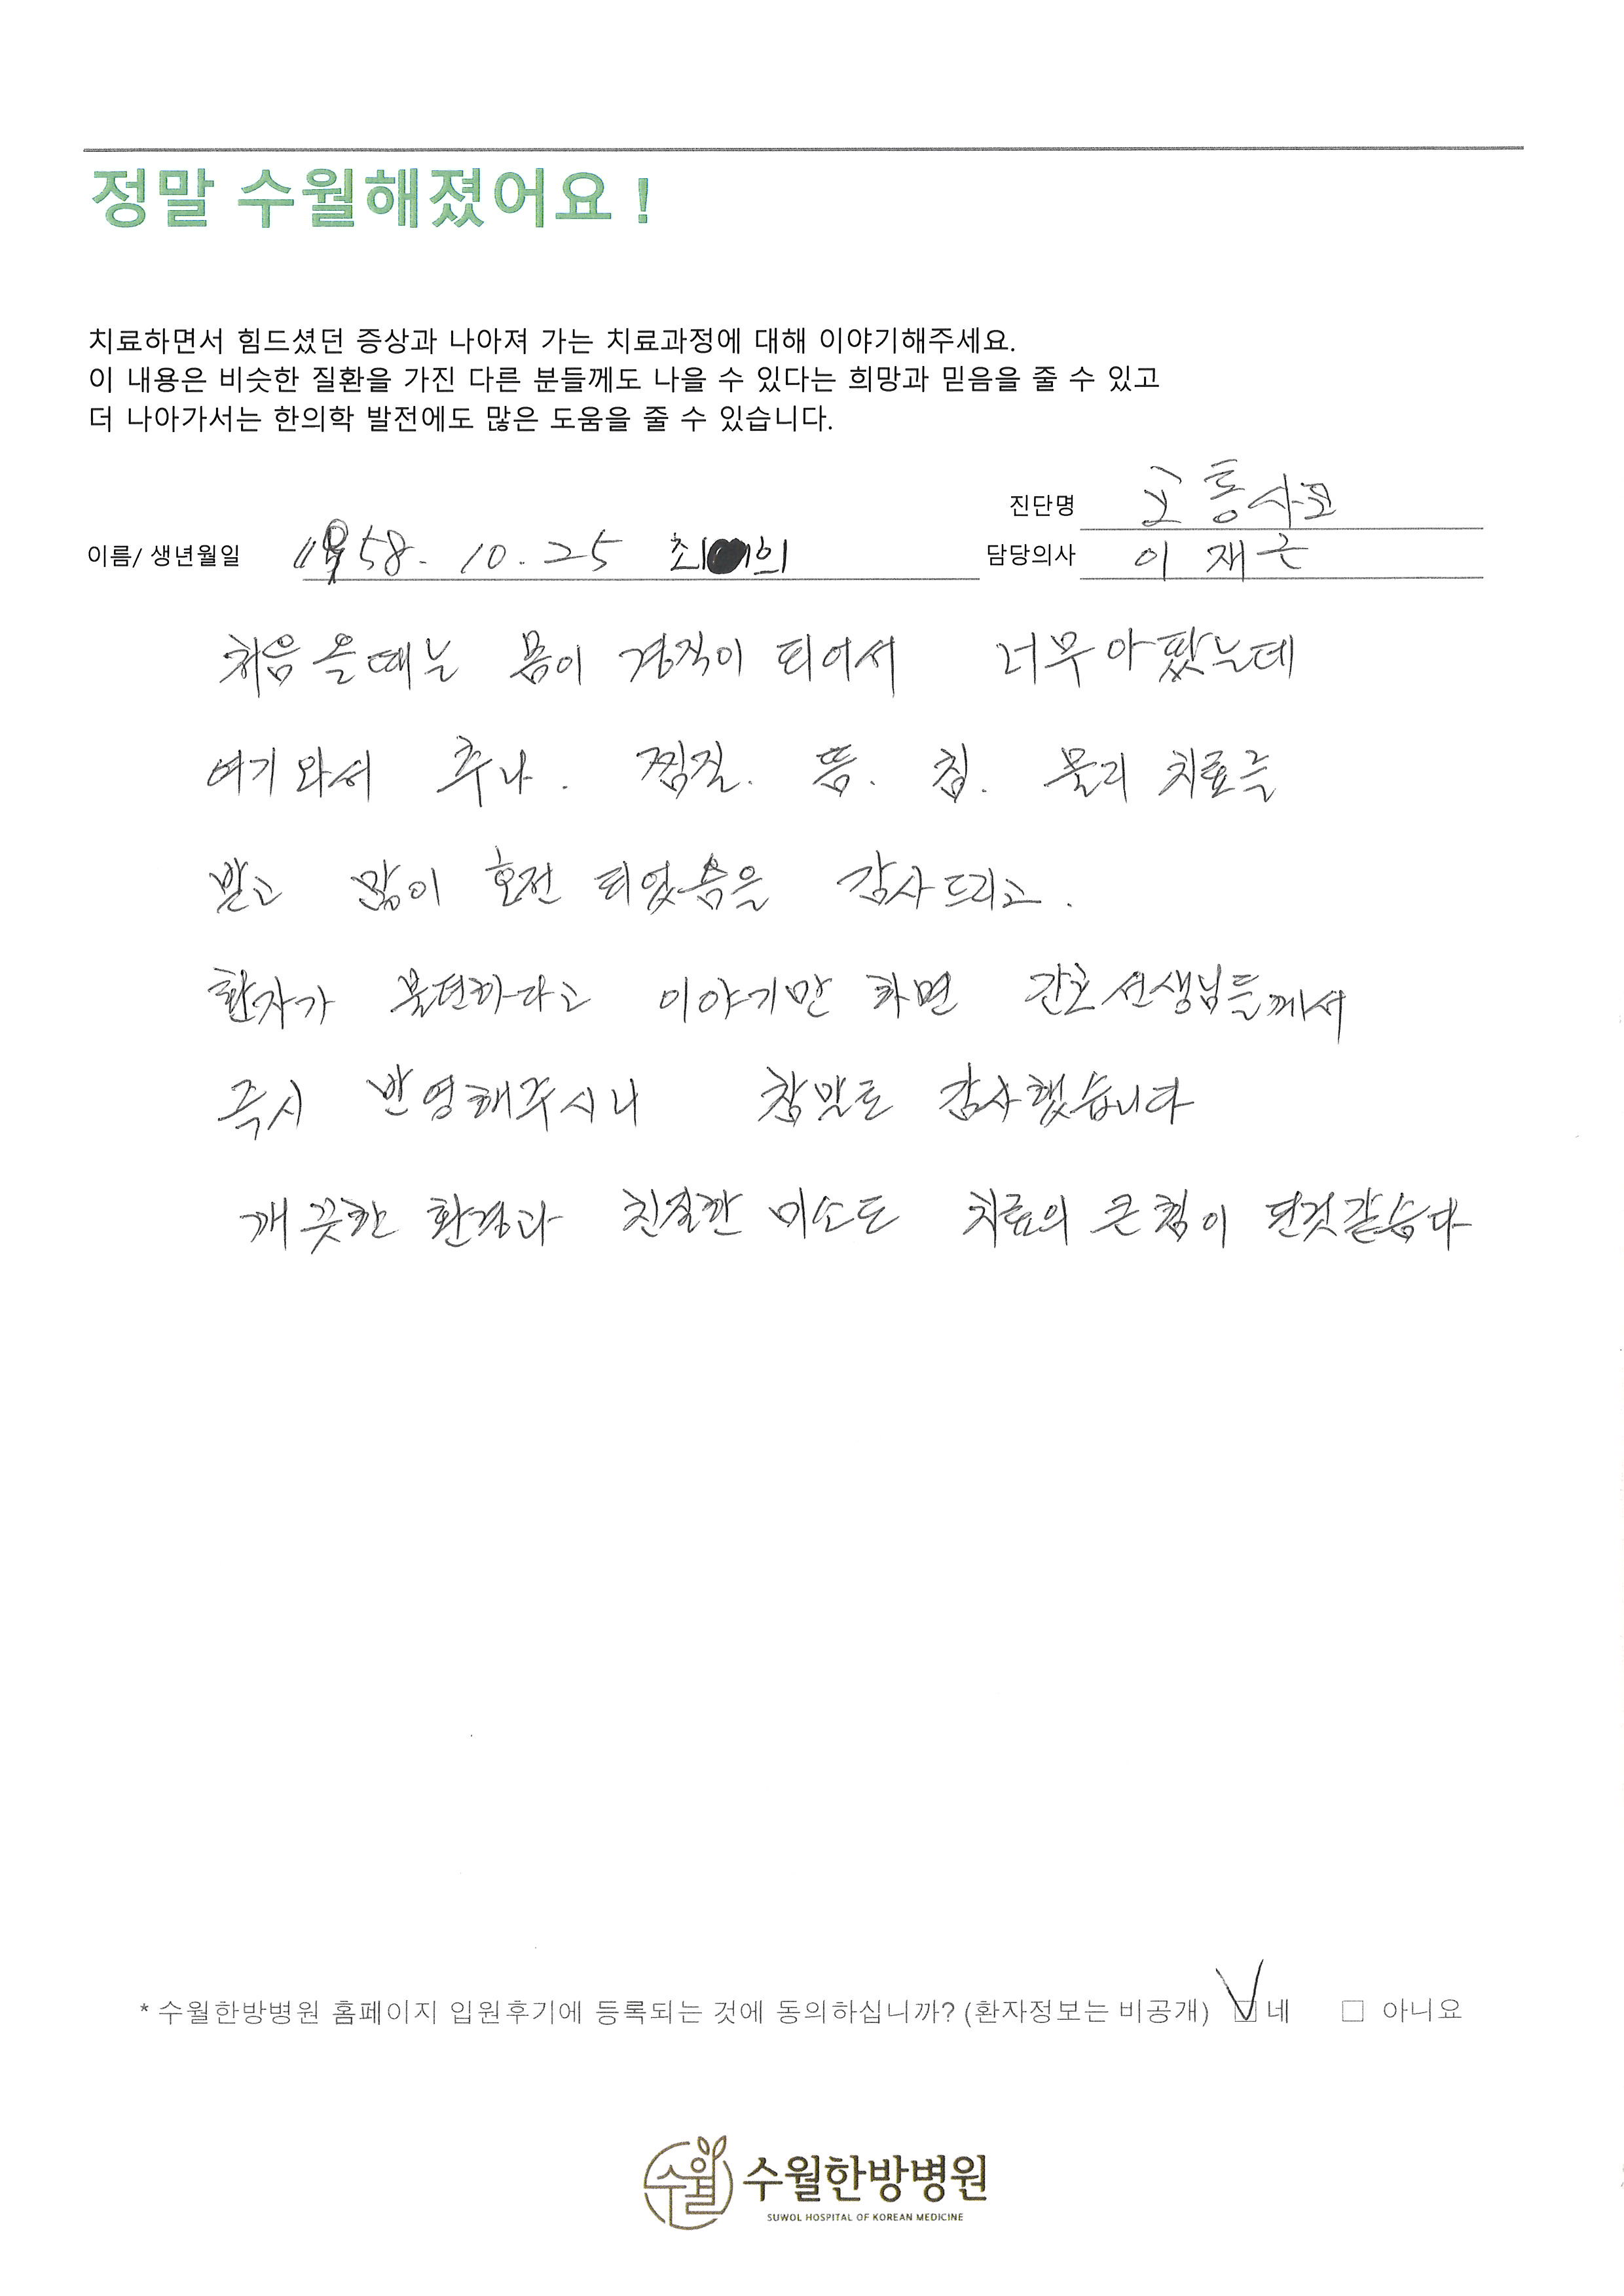 정말 수월해졌어요 !
치료하면서 힘드셨던 증상과 나아져 가는 치료과정에 대해 이야기해주세요.
이 내용은 비슷한 질환을 가진 다른 분들께도 나을 수 있다는 희망과 믿음을 줄 수 있고
더 나아가서는 한의학 발전에도 많은 도움을 줄 수 있습니다.
진단명 교통사고
이름/ 생년월일 58. 10. 25 최 의 담당의사 이재근
처음 올때는 몸이 경직이 되어서 너무 아팠는데
여기 와서 추나. 찜질. 뜸. 침. 물리 치료를
받고 많이 호전 되었음을 감사드리고.
환자가 불편하다고 이야기만 하면 간호 선생님들께서
즉시 반영해주시니 참말로 감사했습니다
깨끗한 환경과 친절한 미소도 치료의 큰 힘이 된것같습다
* 수월한방병원 홈페이지 입원후기에 등록되는 것에 동의하십니까? (환자정보는 비공개) ☑ 네 □ 아니요
수월 수월한방병원
SUWOL HOSPITAL OF KOREAN MEDICINE